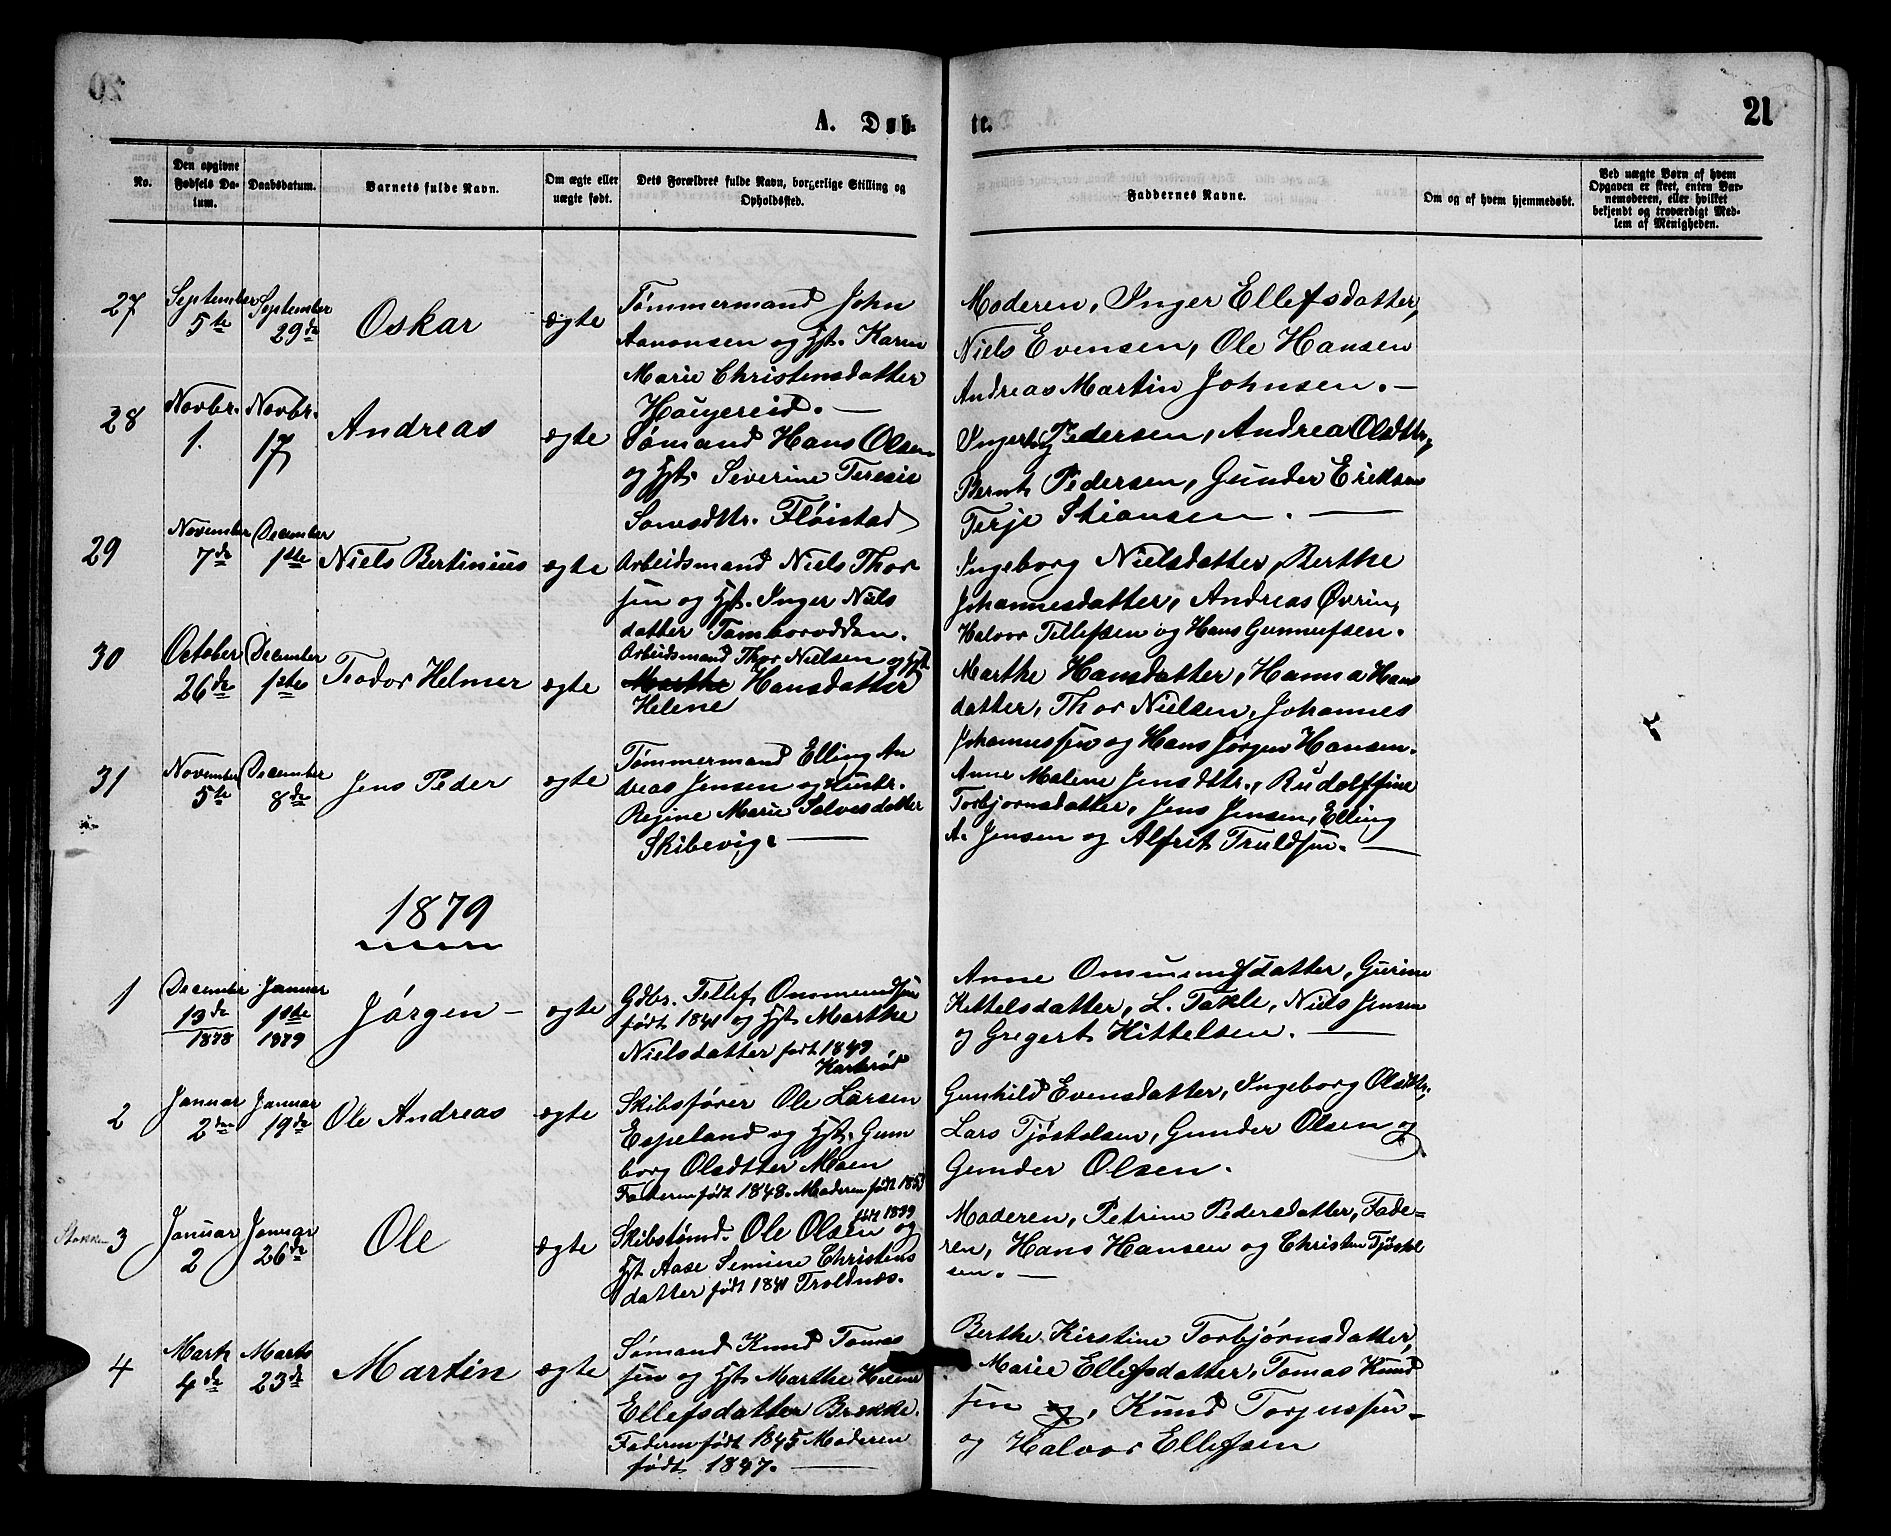 A. Døb-
te.
21
No.
Den opgivne Fødsels Da-
tum.
Daabsdatum.
Barnets fulde Navn.
Om ægte eller
uægte født.
Dets Forældres fulde Navn, borgerlige Stilling og
Opholdssted.
Faddernes Navne.
Om og af hvem hjemmedøbt.
Ved uægte Børn af hvem
Opgaven er skeet, enten Bar-
nemoderen, eller hvilket
bekjendt og troværdigt Med-
lem af Menigheden.
27
September
5te
September
29de
Oskar
ægte
Tømmermand John
Aanonsen og Hst. Karen
Marie Christensdatter
Haugereid. —
Moderen, Inger Ellefsdatter,
Niels Evensen, Ole Hansen
Andreas Martin Johnsen. —
28
Novbr.
1.
Novbr.
17
Andreas
ægte
Sømand Hans Olsen
og Hst. Severine Teresie
Fløistad
Pedersen, Andrea Olsdttr,
Bernt Pedersen, Gunder Eriksen
Terje Stiansen. —
29
November
7de
December
1ste
Niels Bertinius
ægte
Arbeidsmand Niels Thor
sen og Hst. Inger Niels
datter Tamborodden.
Ingeborg Nielsdatter, Berthe
Johannesdatter, Andreas Øvrin,
Halvor Tellefsen og Hans Gunnufsen.
30
October
26de
December
1ste
Teodor Helmer
ægte
Arbeidsmand Thor Nielsen og Hst
Marthe Hansdatter
Helene
Marthe Hansdatter, Hanna Hans
datter, Thor Nielsen, Johannes
Johannessen og Hans Jørgen Hansen.
31
November
5te
December
8de
Jens Peder
ægte
Tømmermand Elling An
dreas Jensen og Hustr.
Regine Marie Salvesdatter
Skibevig. —
Anne Malene Jensdttr., Rudolffine
Torbjornsdatter, Jens Jensen, Elling
A. Jensen og Alfrit Truldsen. —
1879
1
December
13de
1878
Januar
1ste
1879
Jørgen —
ægte
Gdbr. Tellef Ommundsen
født 1841 og Hst. Marthe
Nielsdatter født 1849
Anne Ommundsdatter, Gurine
Kittelsdatter, L. Takle, Niels Jensen
og Gregert Kittelsen. —
2
Januar
2den
Januar
19de
Ole Andreas
ægte
Skibsfører Ole Larsen
Espeland og Hst. Gun
borg Olsdtter Moen
Faderen født 1848. Moderen født
Gunhild Evensdatter, Ingeborg Olsdttr,
Lars Tjøstolsen, Gunder Olsen og
Gunder Olsen.
Stokken
3
Januar
2
Januar
26de
Ole
ægte
født 1839
Skibstømd. Ole Olsen og
Hst Aase Semine Christens
datter født 1841 Troldnæs.
Moderen, Petrine Pedersdatter, Fade=
ren, Hans Hansen og Christen Tjøstol
sen. —
4
Marts
4de
Marts
23de
Martin
ægte
Sømand Knud Tomas
sen og Hst. Marthe Helene
Ellefsdatter Brække.
Faderen født 1845 Moderen
født 1847. —
Berthe Kirstine Torbjørnsdatter,
Marie Ellefsdatter, Tomas Knud
sen og, Knud Torjussen
og Halvor Ellefsen